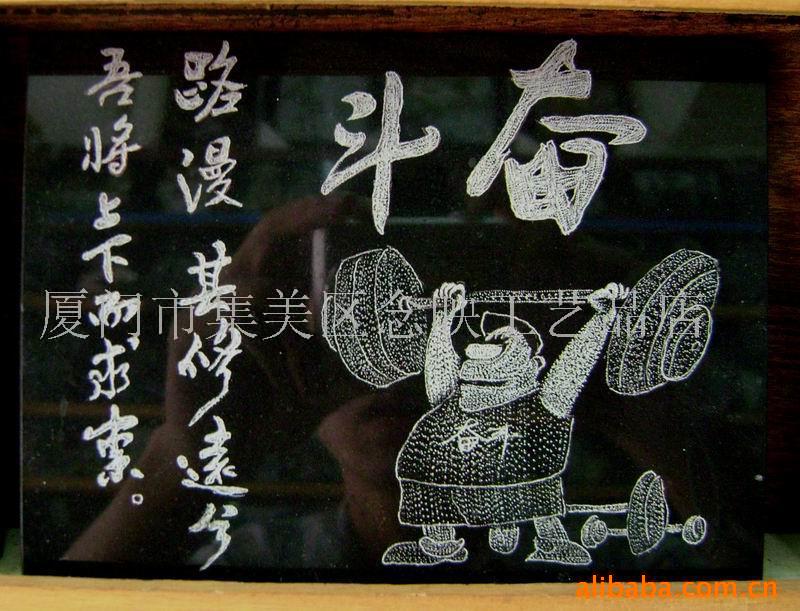 奋斗
路漫其修遠兮
吾将上下而求索。
奋斗
厦门市集美区念映工艺品店
alibaba.com.cn